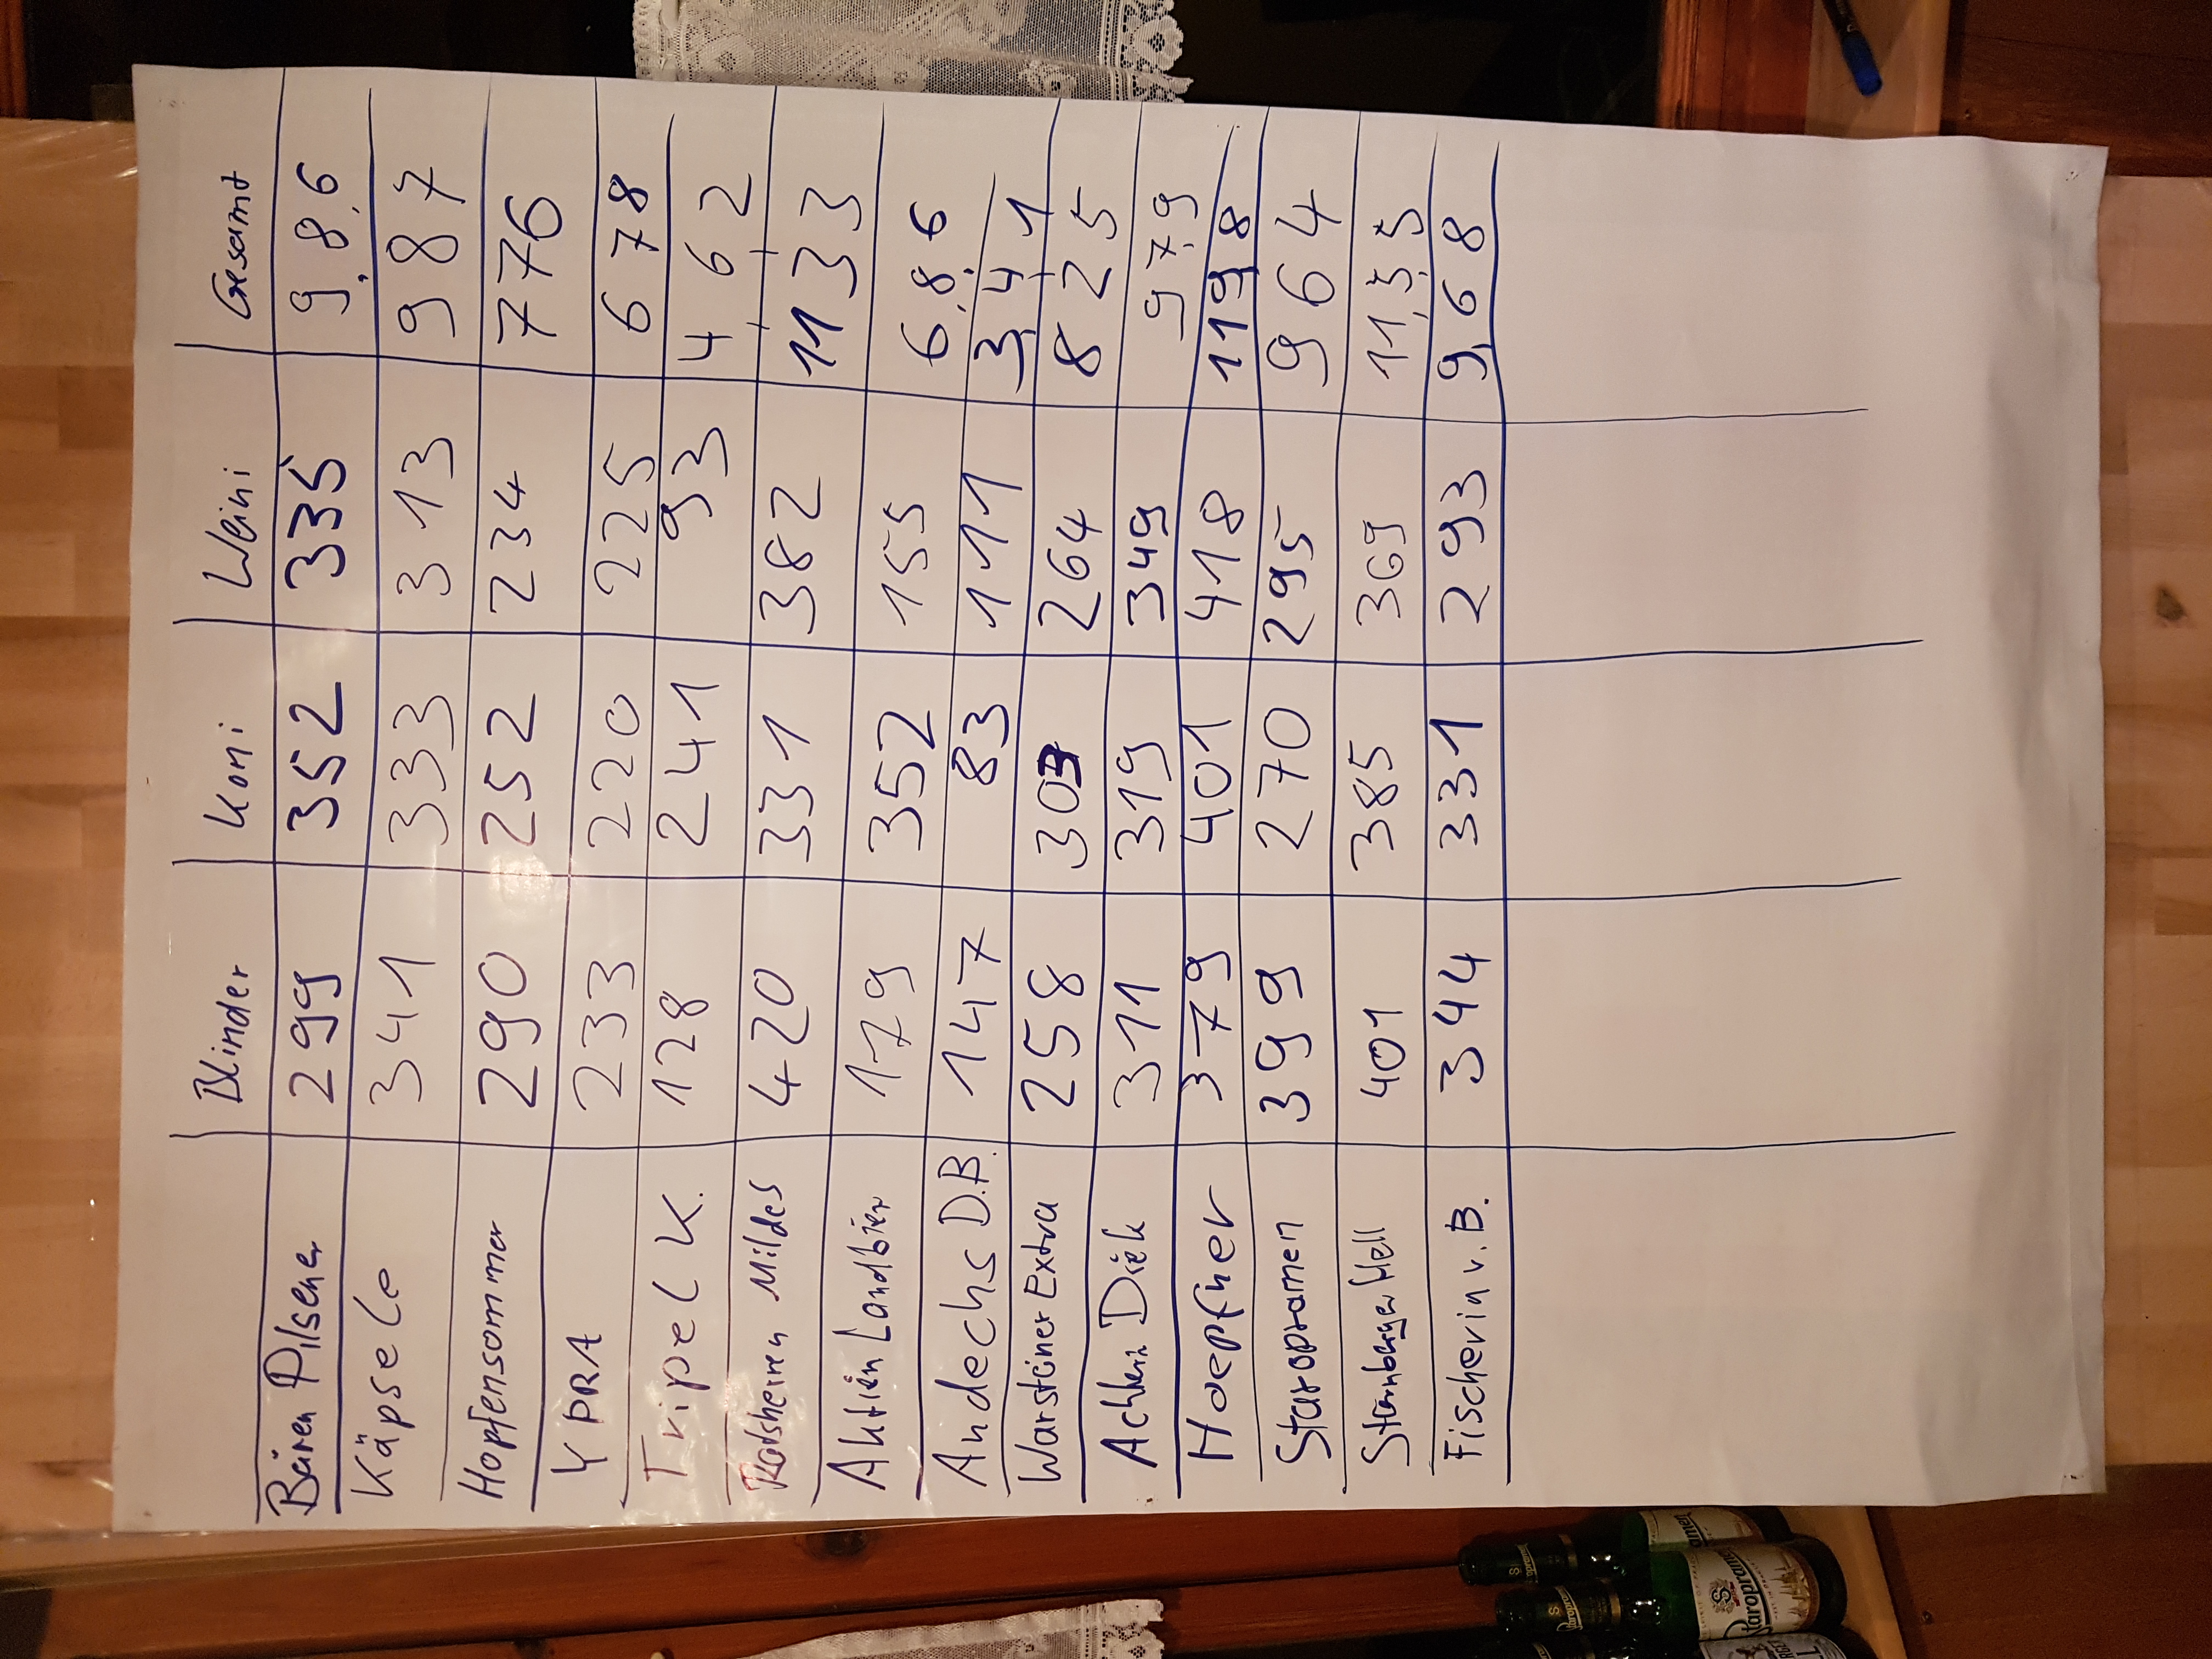 Blinder Koni Weini Gesamt
Bären Pilsener 299 352 335 9,8,6
Käpsele 341 333 313 987
Hopfensommer 290 252 234 776
YPRA 233 220 225 678
Tripel K. 128 241 93 462
Rotsherren Mildes 420 331 382 1133
Aktien Landbier 179 352 155 6,8,6
Andechs D.B. 147 83 111 3,4,1
Warsteiner Extra 258 303 264 825
Achherz Dick 311 319 349 97,9
Hoepfner 379 401 418 1198
Staropramen 399 270 295 964
Starnberger Hell 401 385 369 11,5,5
Fischerin v. B. 344 331 293 9,68
Staropramen